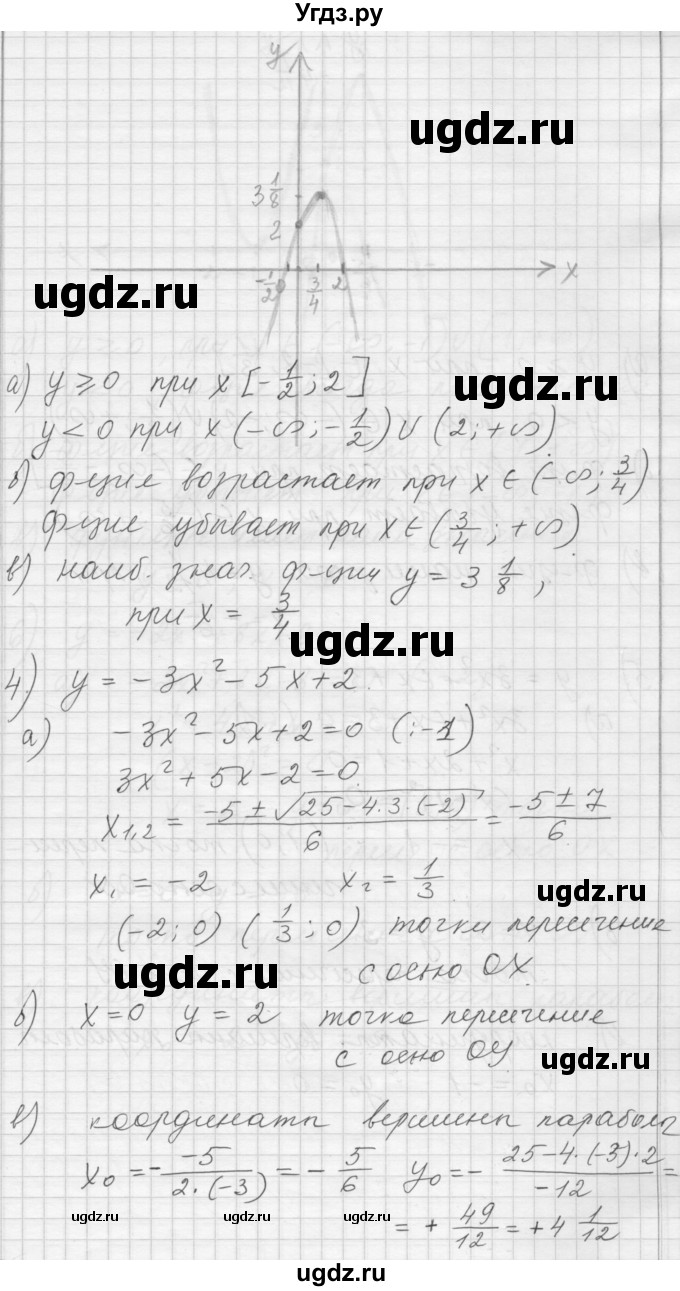 Угдз.ру
y
ugdz.ru
3 1/8
2
-1/2 0 3/4 2 x
ugdz.ru
а) y ⩾ 0 при x [-1/2; 2]
ugdz.ru
y < 0 при x (-∞; -1/2) ∪ (2; +∞)
б) ф-ция возрастает при x ∈ (-∞; 3/4)
ф-ция убывает при x ∈ (3/4; +∞)
в) наиб. знач. ф-ции y = 3 1/8,
при x = 3/4
ugdz.ru
4) y = -3x² - 5x + 2.
а) -3x² - 5x + 2 = 0 (:-1)
3x² + 5x - 2 = 0
x₁,₂ = (-5 ± √(25 - 4·3·(-2)))/6 = (-5 ± 7)/6
x₁ = -2 x₂ = 1/3
ugdz.ru
(-2; 0) (1/3; 0) точки пересечение
ugdz.ru
с осью OX.
б) x = 0 y = 2 точка пересечение
с осью OY
ugdz.ru
в) координаты вершины параболы
x₀ = - -5/(2·(-3)) = - 5/6 y₀ = - (25 - 4·(-3)·2)/-12 =
ugdz.ru ugdz.ru ugdz.ru
= + 49/12 = +4 1/12
ugdz.ru